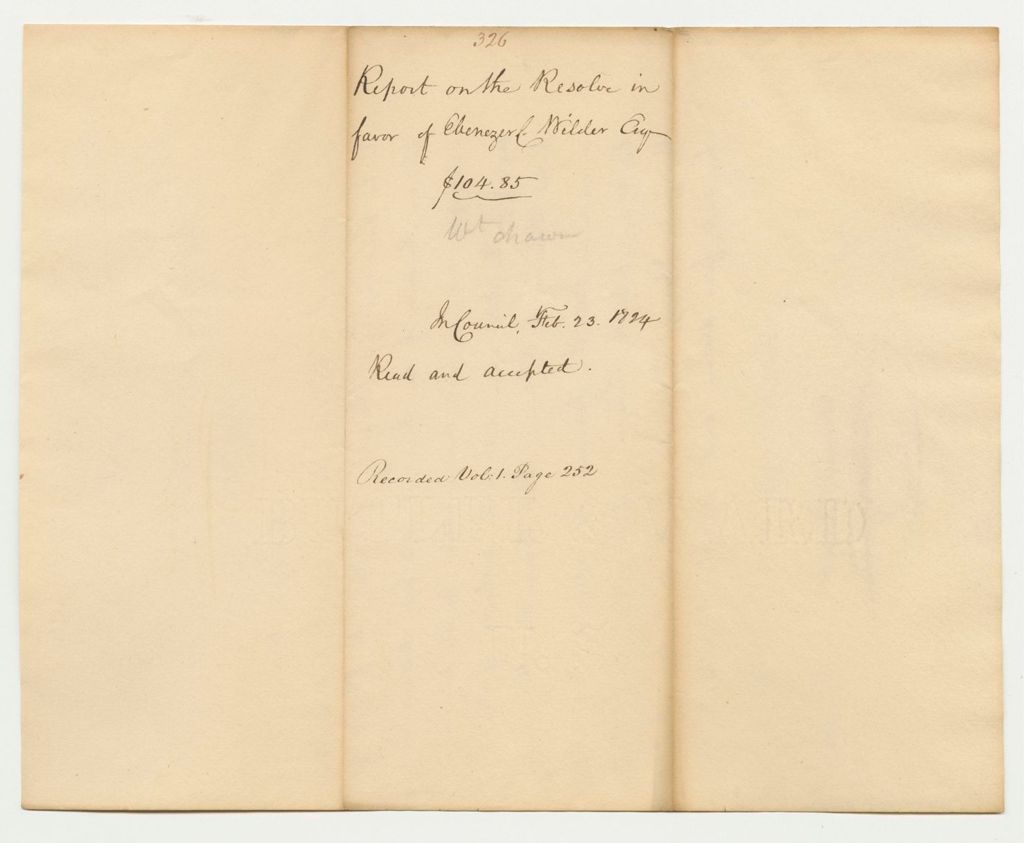 326
Report on the Resolve in
favor of Ebenezer C. Wilder Esq
$104.85
Wt drawn
In Council, Feb. 23. 1824
Read and accepted.
Recorded Vol. 1. Page 252